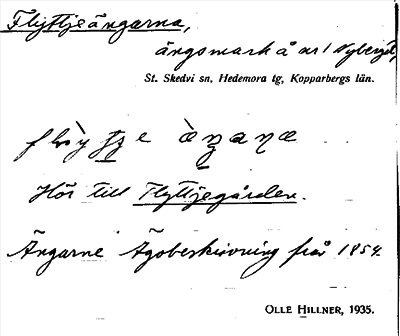 Flyttjeängarna,
ängsmark å nr 1 Nyberget,
St. Skedvi sn, Hedemora tg, Kopparbergs län.
Hör till Flyttjegården.
Ängarne Ägobeskrivning från 1854.
OLLE HILLNER, 1935.